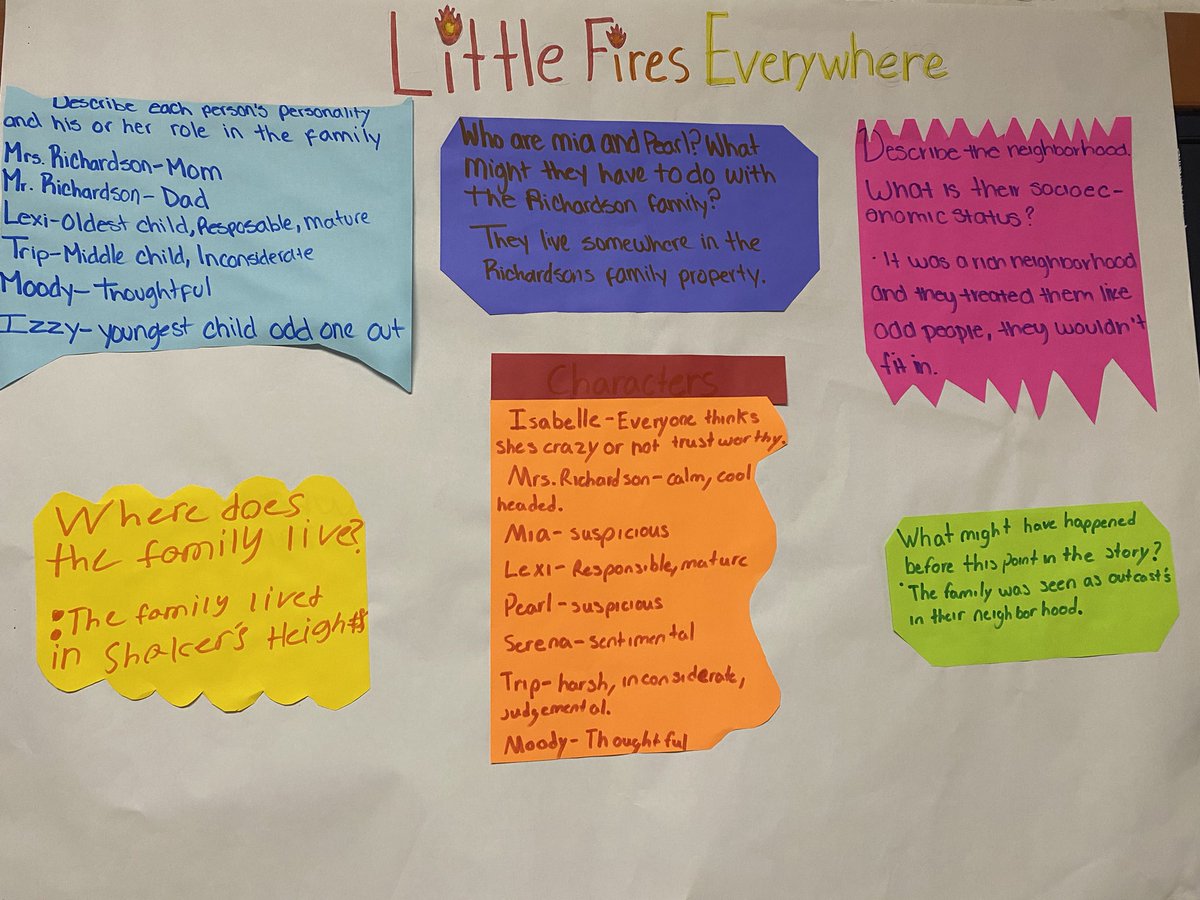 Little Fires Everywhere
Describe each person's personality
and his or her role in the family
Mrs. Richardson-Mom
Mr. Richardson-Dad
Lexi-Oldest child, Resposable, mature
Trip-Middle child, Inconsiderate
Moody-Thoughtful
Izzy-youngest child odd one out
Who are mia and Pearl? What
might they have to do with
the Richardson family?
They live somewhere in the
Richardsons family property.
Describe the neighborhood.
What is their socioec-
onomic status?
· It was a rich neighborhood
and they treated them like
odd people, they wouldn't
fit in.
Characters
Isabelle-Everyone thinks
shes crazy or not trustworthy.
Mrs. Richardson-calm, cool
headed.
Mia-suspicious
Lexi-Responsible, mature
Pearl-suspicious
Serena-sentimental
Trip-harsh, inconsiderate,
judgemental.
Moody-Thoughtful
Where does
the family live?
:The family lived
in Shaker's Heights
What might have happened
before this point in the story?
·The family was seen as outcast's
in their neighborhood.